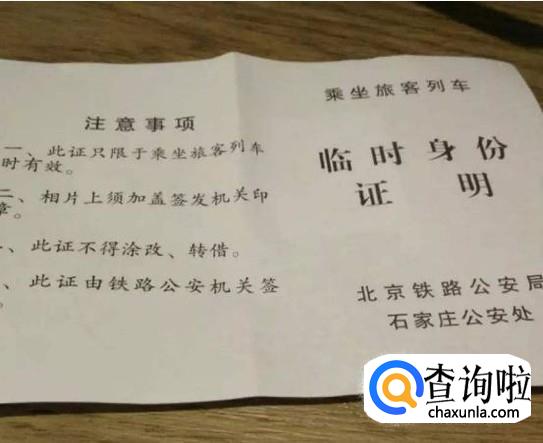 注意事项
一、此证只限于乘坐旅客列车
时有效。
二、相片上须加盖签发机关印
章。
、此证不得涂改、转借。
、此证由铁路公安机关签
。
乘坐旅客列车
临时身份
证明
北京铁路公安局
石家庄公安处
查询啦
chaxunla.com